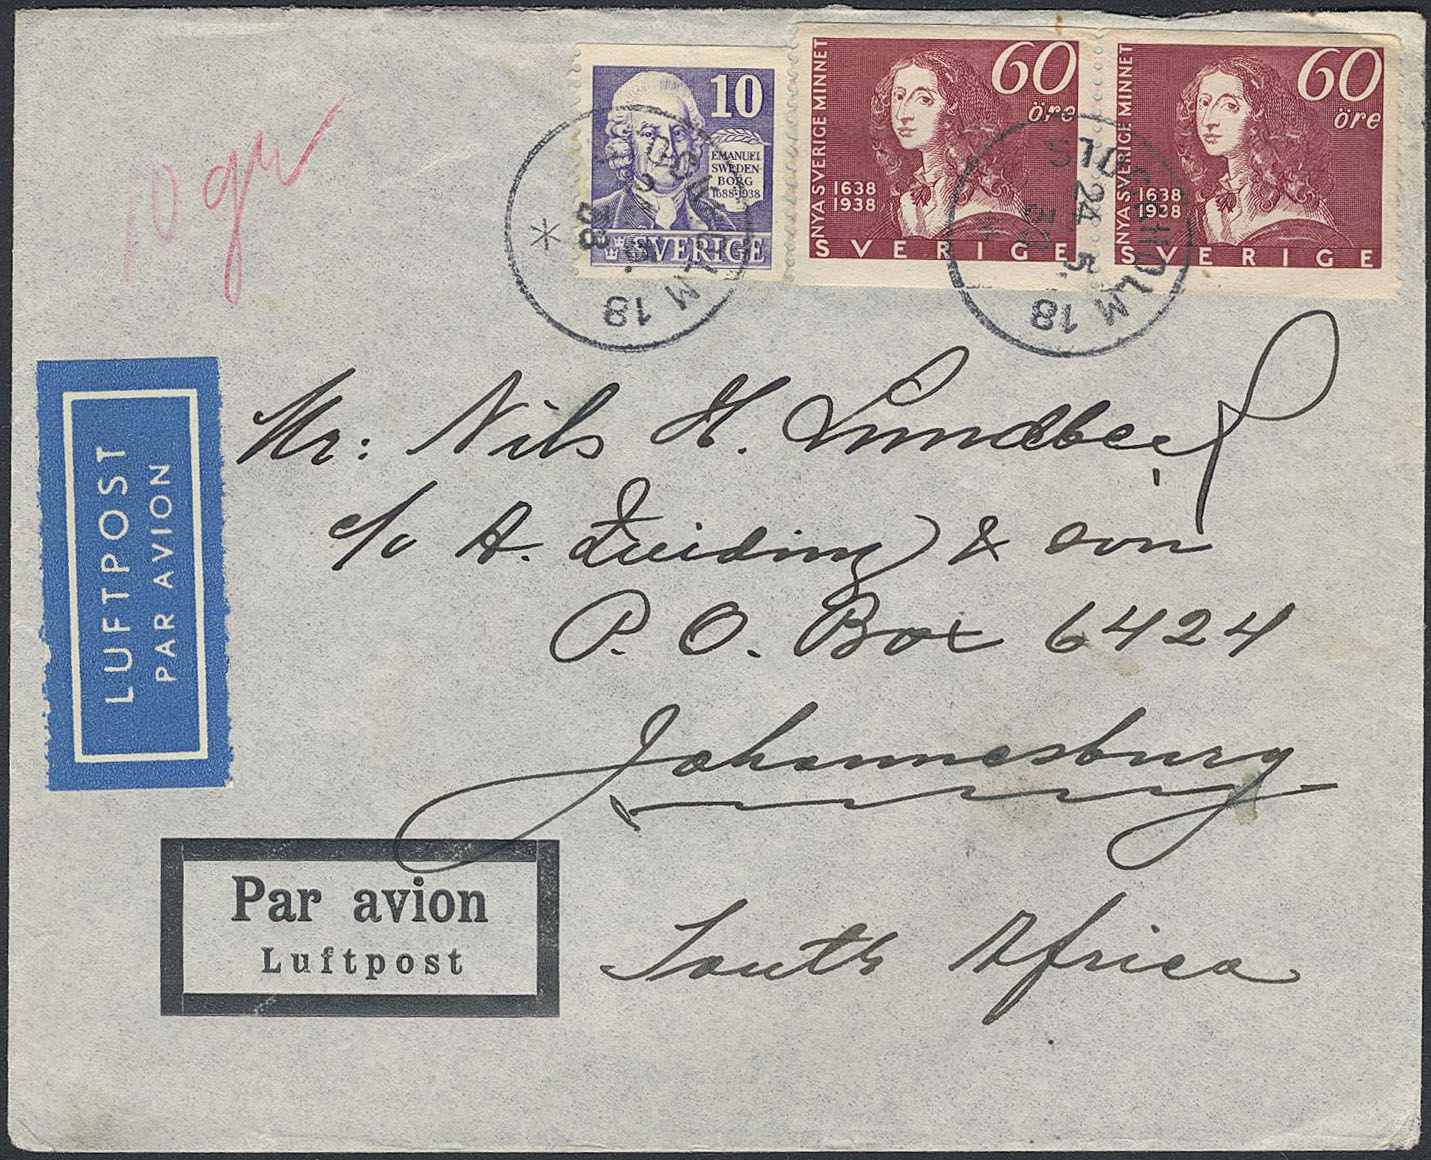 10 gr
10
EMANUEL
SWEDEN-
BORG
1688-1938
SVERIGE
NYA SVERIGE MINNET
60
öre
1638
1938
SVERIGE
NYA SVERIGE MINNET
60
öre
1638
1938
SVERIGE
STOCKHOLM 18
24 5
38
STOCKHOLM 18
24 5.
38
LUFTPOST
PAR AVION
Mr: Nils H. Lundberg
c/o A. & Son
P. O. Box 6424
Johannesburg
South Africa
Par avion
Luftpost